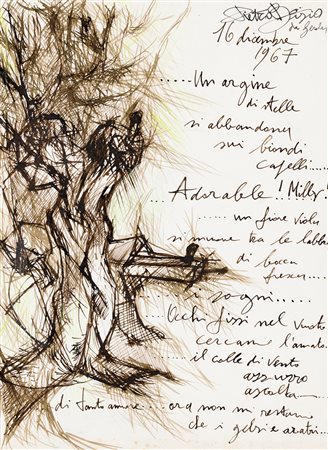 16 dicembre
1967
.....Un argine
di stelle
si abbandona
sui biondi
capelli.....
....Adorable! Milly!
.....un fiore viola
si muove tra le labbra
di bocca
fresca......
.....i sogni.....
Occhi fissi nel vuoto
cercano l'amato...
il colle di vento
azzurro
ascolta
di tanto amore...ora non mi restano
che i gelsi e